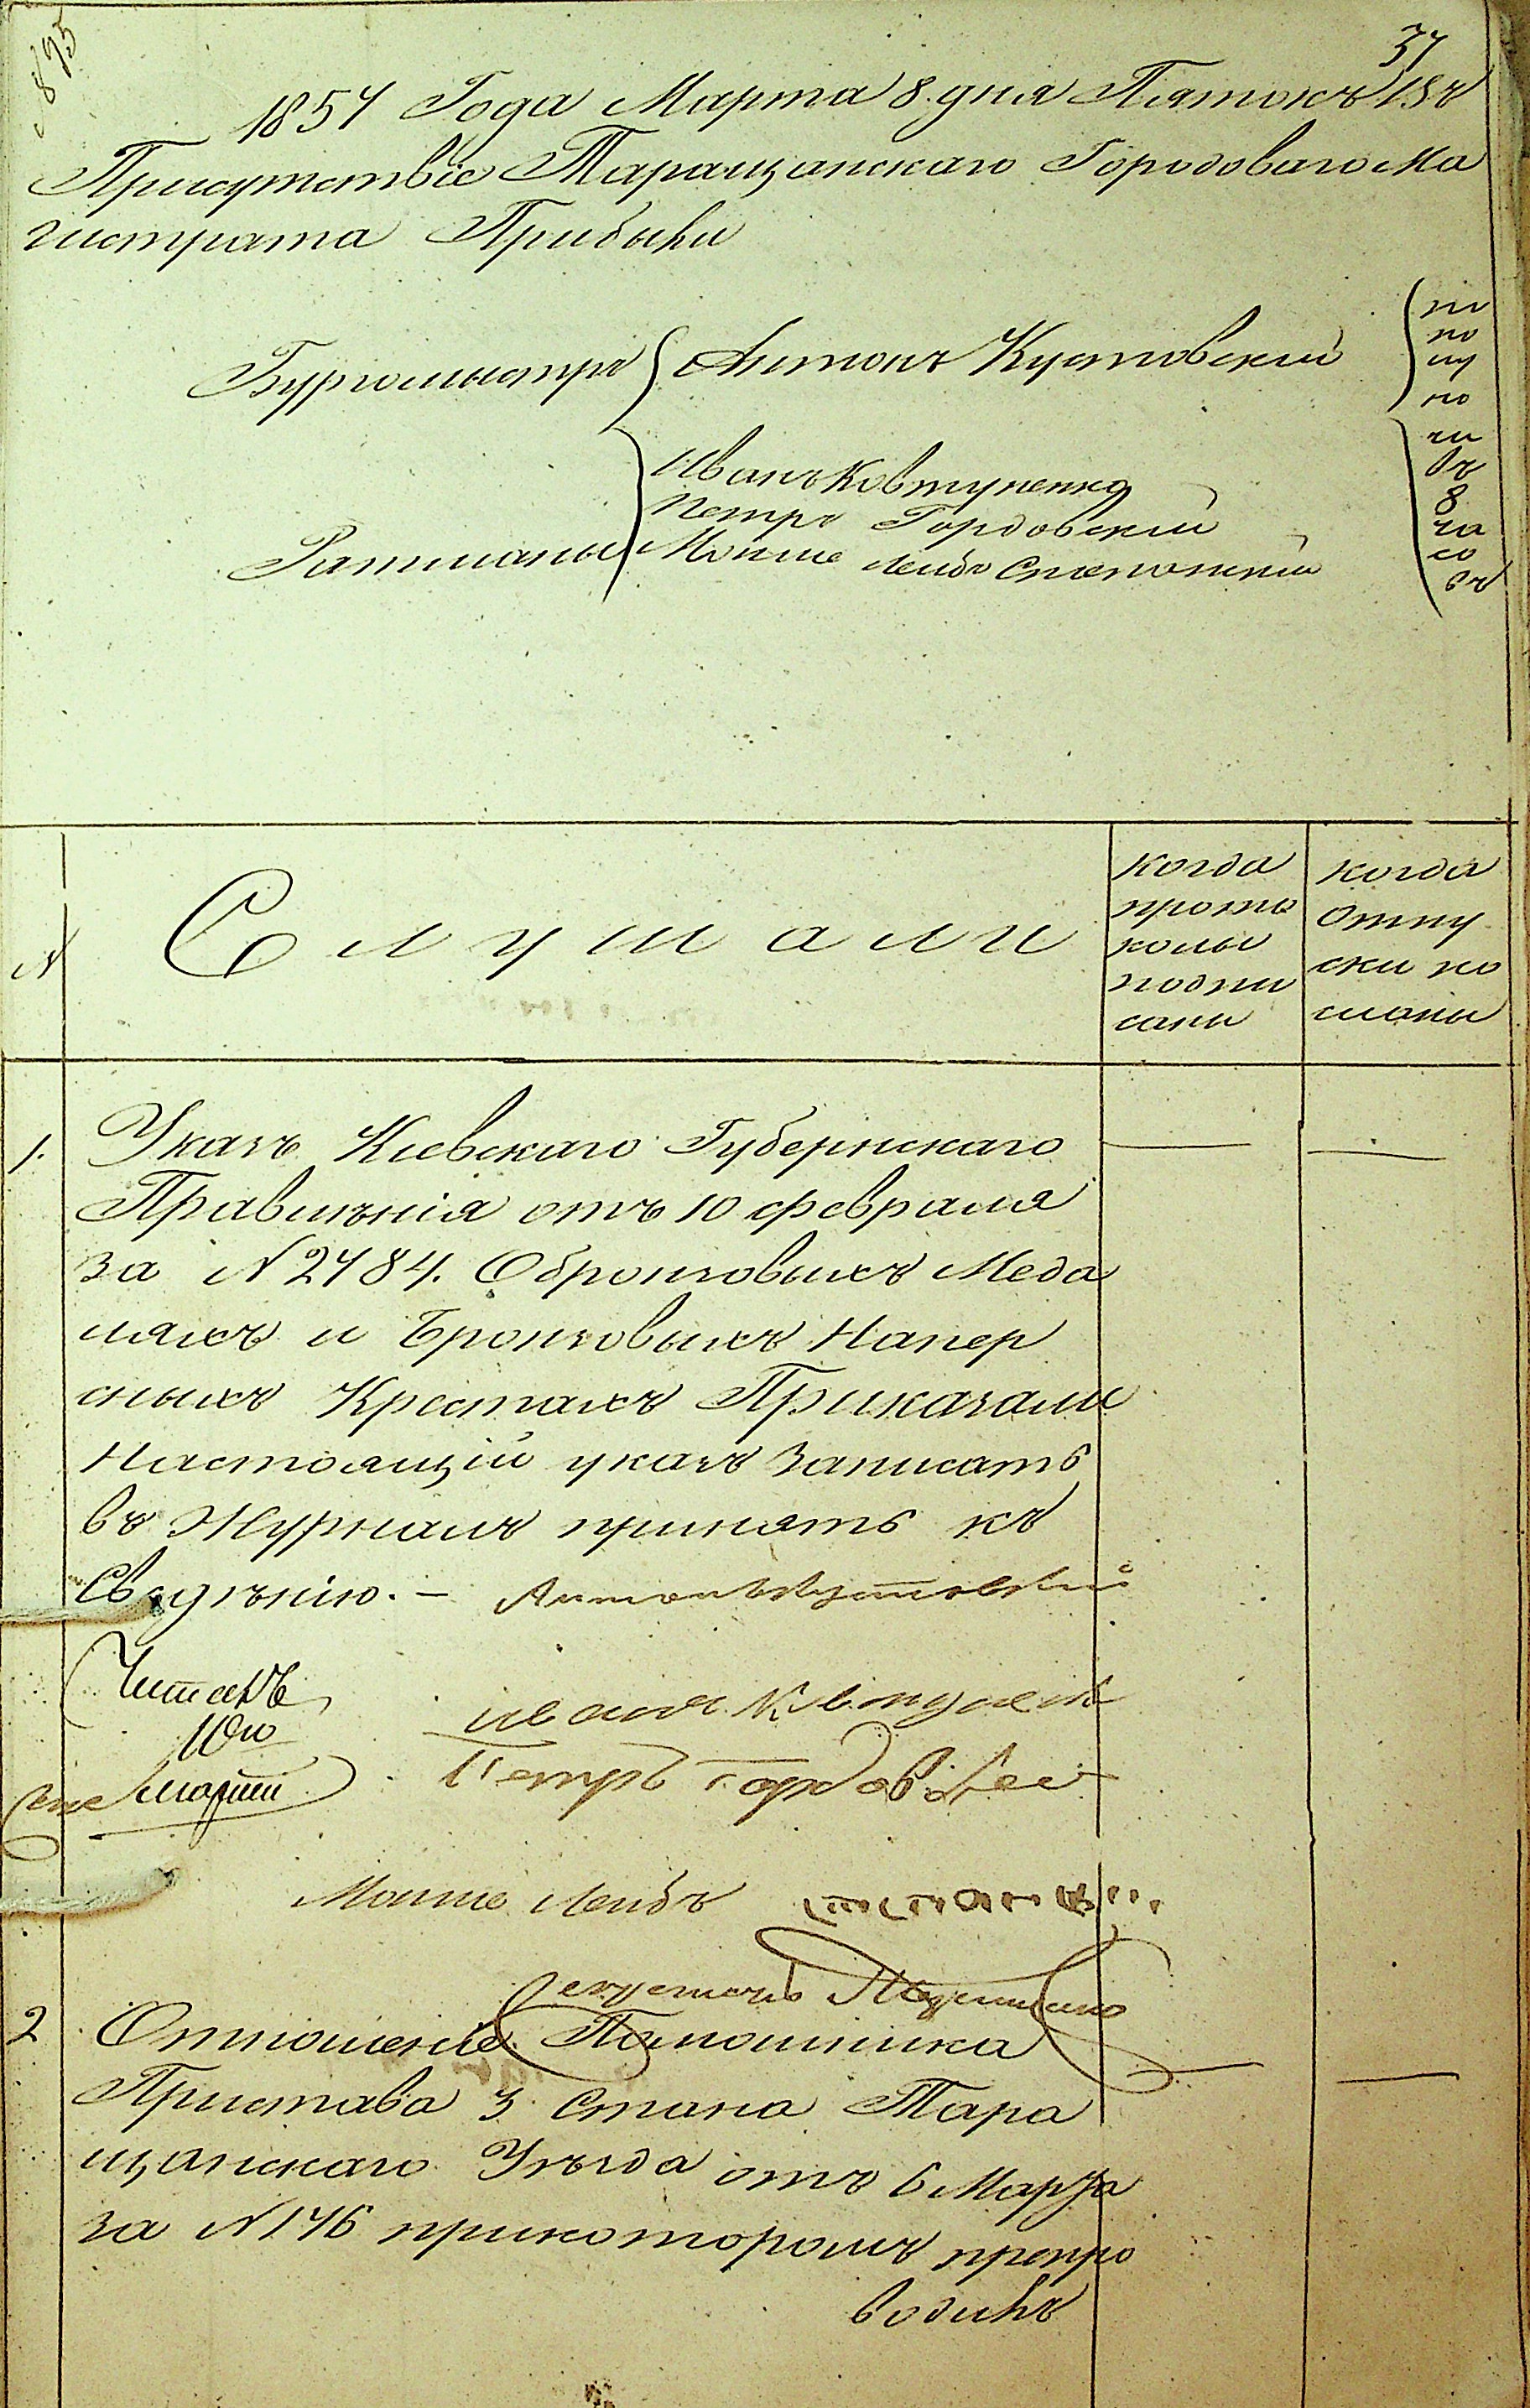 37
1857 Года Марта 8. дня Пятокъ въ
Присутствіе Таращанскаго Городоваго Ма
гистрата Прибыли
Бургомистръ Антонъ Кустовскій
по
по
лу
но
чи
въ
8
ча
со
въ
Ратманы
Иванъ Ковтуненко
Петръ Гордовскій
Мошие Лейбъ
№
Слушали
когда
прото
колы
подпи
саны
когда
отпу
ски по
сланы
1.
Указъ Кіевскаго Губернскаго
Правленія отъ 10 февраля
за № 2484. Обронзовыхъ Меда
ляхъ и Бронзовыхъ Напер
сныхъ Крестахъ Приказали
Настоящій указъ Записать
въ Журналъ принять къ
Сведѣнію. — Антонъ Кустовскій
Читалъ
10го
Марта
Иванъ Ковтуненк
Петръ Гордовскі
Мошие Лейбъ
2
Отношеніе Помошника
Пристава 3 Стана Тара
щанскаго Уѣзда отъ 6 Марта
за № 146 прикоторомъ препро
водилъ